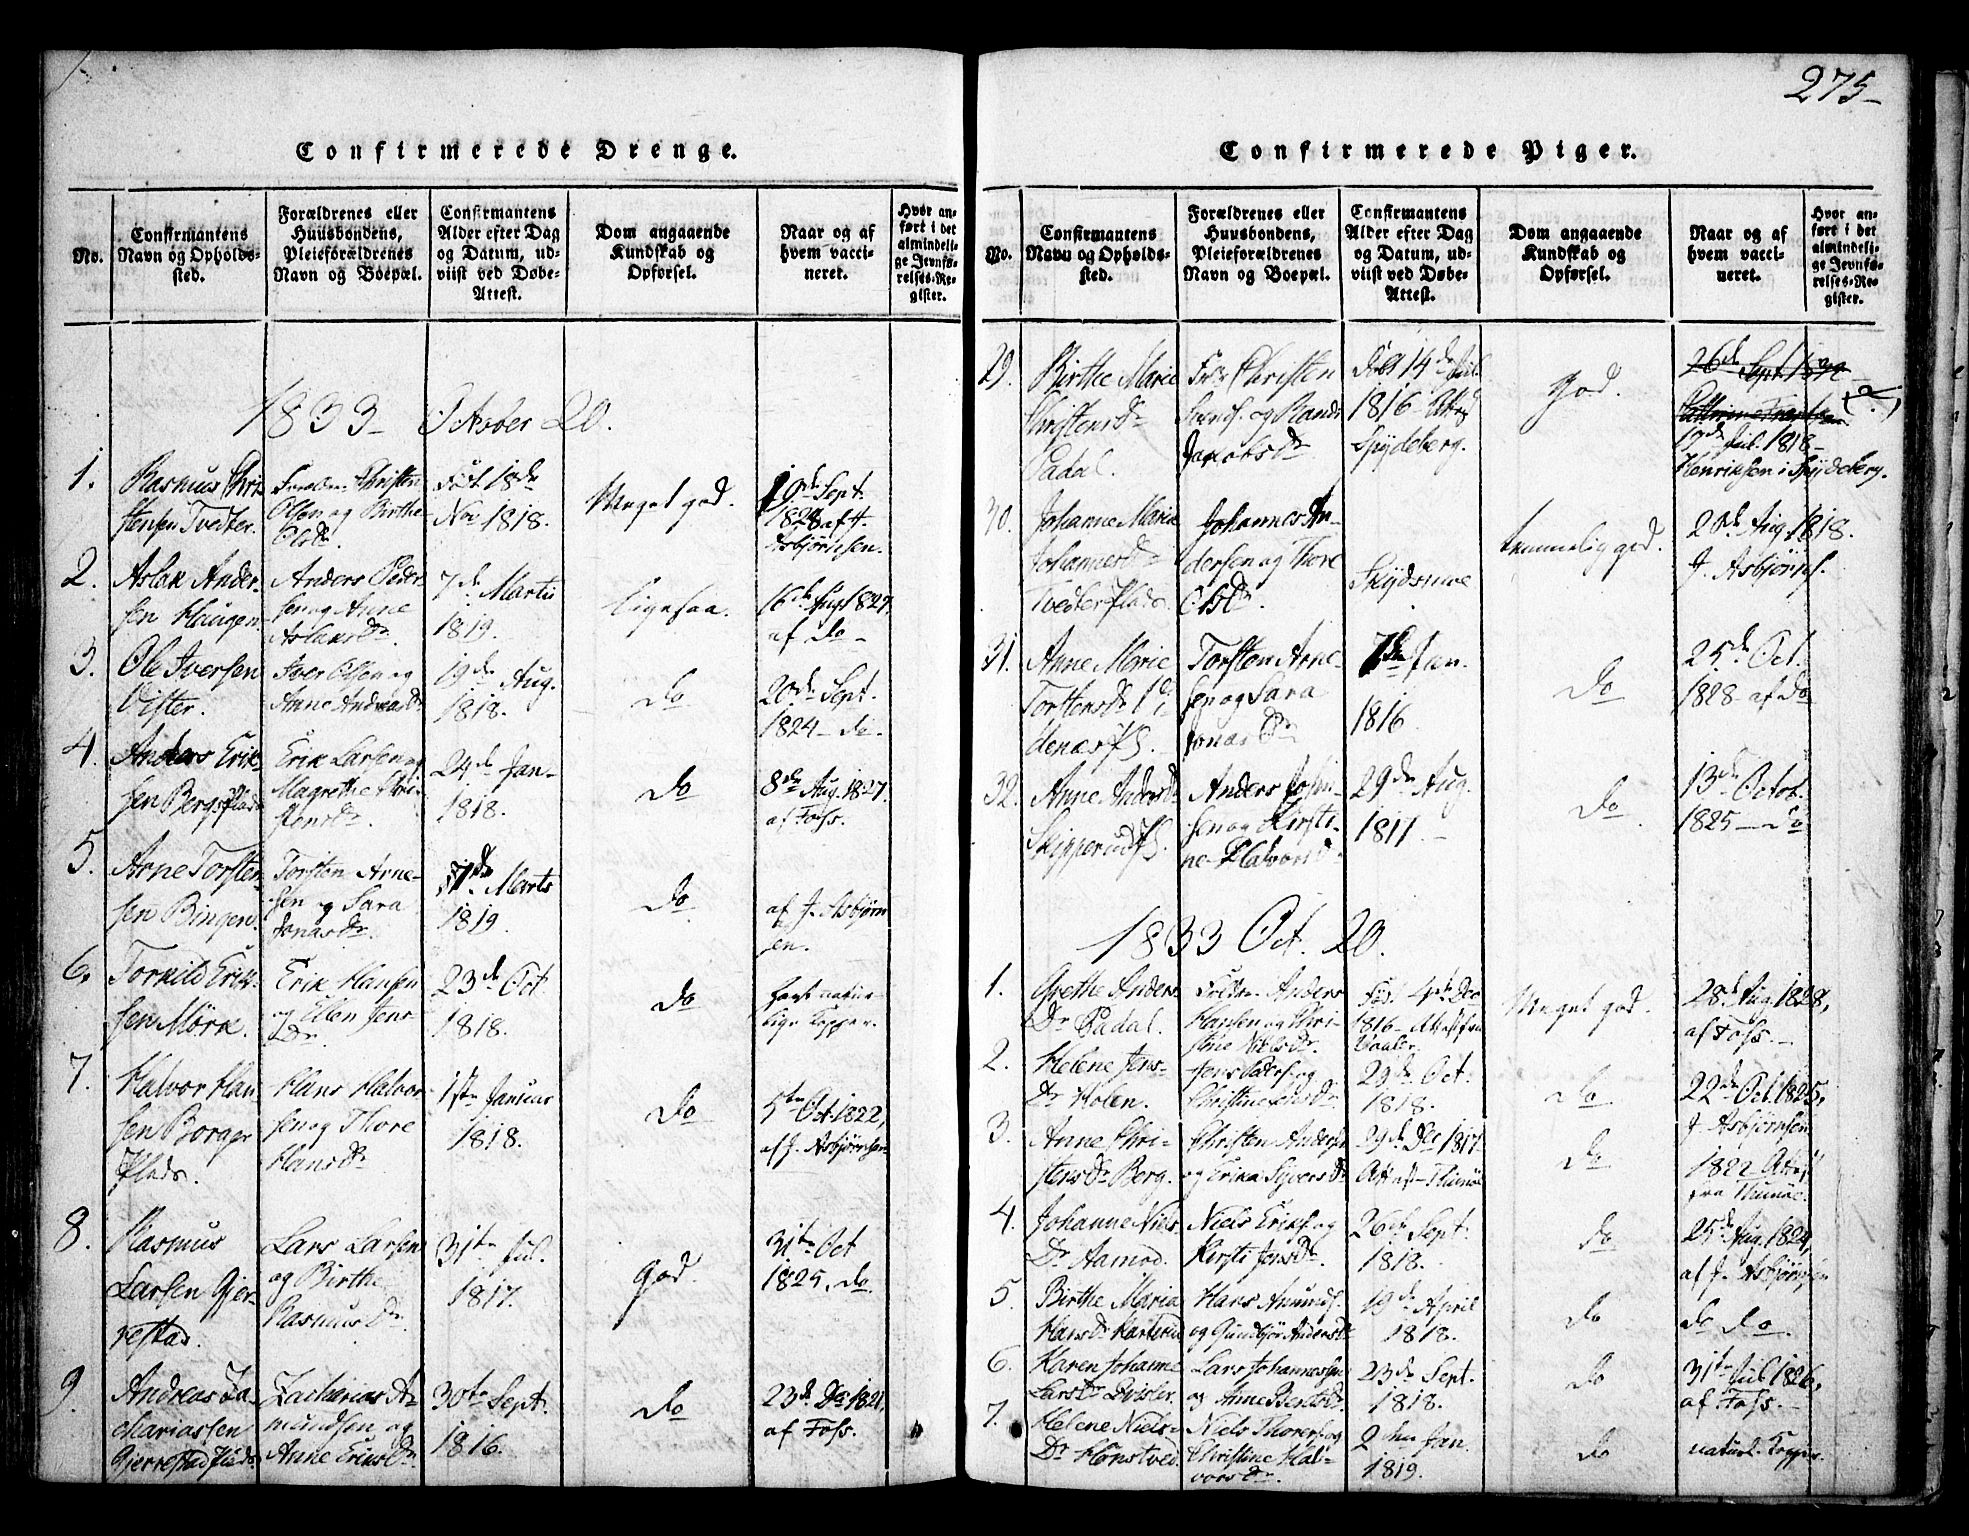 275-
Confirmerede Drenge.
No.
Confirmantens
Navn og Opholds-
sted.
Forældrenes eller
Huusbondens,
Pleieforældrenes
Navn og Boepæl.
Confirmantens
Alder efter Dag
og Datum, ud-
viist ved Døbe-
Attest.
Dom angaaende
Kundskab og
Opførsel.
Naar og af
hvem vacci-
neret.
Hvor an-
ført i det
almindeli-
ge Jevnfø-
relses-Re-
gister.
1833 - October 20.
1.
Rasmus Chri-
stensen Tvedter.
Christen
Olsen og Birthe
Olsdr.
Föd 18de
Nov 1818.
Meget god.
19de Sept.
1828 af J.
Asbjörnsen.
2.
Aslak Ander-
sen Haugen.
Anders Peder-
sen og Anne
Aslaksdr.
7de Martii
1819.
Ligesaa.
16de Aug 1827.
af do -
3.
Ole Iversen
Vister.
Iver Olsen og
Anne Andreasdr
19de Aug.
1818.
do
20de Sept.
1824 - do.
4.
Anders Erik-
sen Bergsplads
Erik Larsen og
Magrethe Chri-
stensdr.
24de Jan-
1818.
do
8de Aug. 1827.
af Foss.
5.
Arne Torsten-
sen Bingen.
Torsten Arne-
sen og Sara
Jonasdr.
7de Marts
1819.
do
af J. Asbjörn-
sen.
6.
Torkild Erik-
sen Mörk.
Erik Hansen
og Ellen Jens
Dr.
23de Oct.
1818.
do
havt natur-
lige Kopper.
7.
Halvor Han-
sen Borger
Plads.
Hans Halvor-
sen og Thore
Hansdr
1ste Januar
1818.
do
5te Oct. 1822,
af J. Asbjörnsen
8.
Rasmus
Larsen Gjer-
restad.
Lars Larsen
og Birthe
Rasmusdr.
31te Jul.
1817.
God.
31te Oct
1825, do
9.
Andreas Za-
chariassen
Gjerrestad Plads
Zacharias A-
mundsen og
Anne Eriksdr
30te Sept.
1816.
do
23de Dec 1821,
af Foss.
Confirmerede Piger.
No.
Confirmantens
Navn og Opholds-
sted.
Forældrenes eller
Huusbondens,
Pleieforældrenes
Navn og Boepæl.
Confirmantens
Alder efter Dag
og Datum, ud-
viist ved Døbe-
Attest.
Dom angaaende
Kundskab og
Opførsel.
Naar og af
hvem vacci-
neret.
Hvor an-
ført i det
almindeli-
ge Jevnfø-
relses-Re-
gister.
29.
Birthe Marie
Christensdr
Padal.
Christen
Svends. og Randi
Jacobsdr
Föd 14de Jul.
1816 - Attest
Spydeberg.
God.
26de Sept.
17de Jul. 1818 -
Henriksen i Spydeberg.
30.
Johanne Marie
Johannesdr
Tvedter Plads.
Johannes An-
dersen og Thore
Olsdr.
temmelig god.
20de Aug. 1818.
J. Asbjörns.
31.
Anne Marie
Torstensdr
Torsten Arne-
sen og Sara
Jonasdr
7de Jan.
1816
do
25de Oct.
1828 - af do
32.
Anne Andersdr
Skipperud Pl.
Anders
sen og Kirsti-
ne Halvorsd.
29de Aug.
1817. -
do
13de Octob.
1825 - do
1833 Oct. 20.
1.
Grethe Anders-
Dr Padal.
Anders
Hansen og Chri-
stine Nielsdr.
Föd 4de Dec
1816 - Attest fra
Vaaler.
Meget god.
28de Aug. 1828,
af Foss. -
2.
Helene Jens-
Dr Holen.
Jens Peders. og
Christine Jensdr.
29de Oct.
1818.
do.
22de Oct. 1825,
J. Asbjörnsen
3.
Anne Chri-
stensdr Berg.
Christen Andersen
og Erika Syversdr
29de Dec 1817
Attest - Thunöe
do
1822 - Attest
fra Thunöe.
4.
Johanne Niels-
Dr Aamod.
Niels Eriks. og
Kirsti Jensdr.
26de Sept.
1818.
do
25de Aug. 1824,
af J. Asbjörnsen
5.
Birthe Maria
Hansdr
Hans Amunds.
og Gunbjör Andersdr
19de April
1818.
do
do do.
6.
Karen Johanne
Larsdr
Lars Johannessen
og Anne Bentsdr.
23de Sept.
1818.
do
31te Jul. 1826,
af Foss. -
7.
Helene Niels-
Dr Honstved.
Niels Thorers. og
Christine Hal-
vorsdr.
2den Jan.
1819.
do
naturl. Kopper.